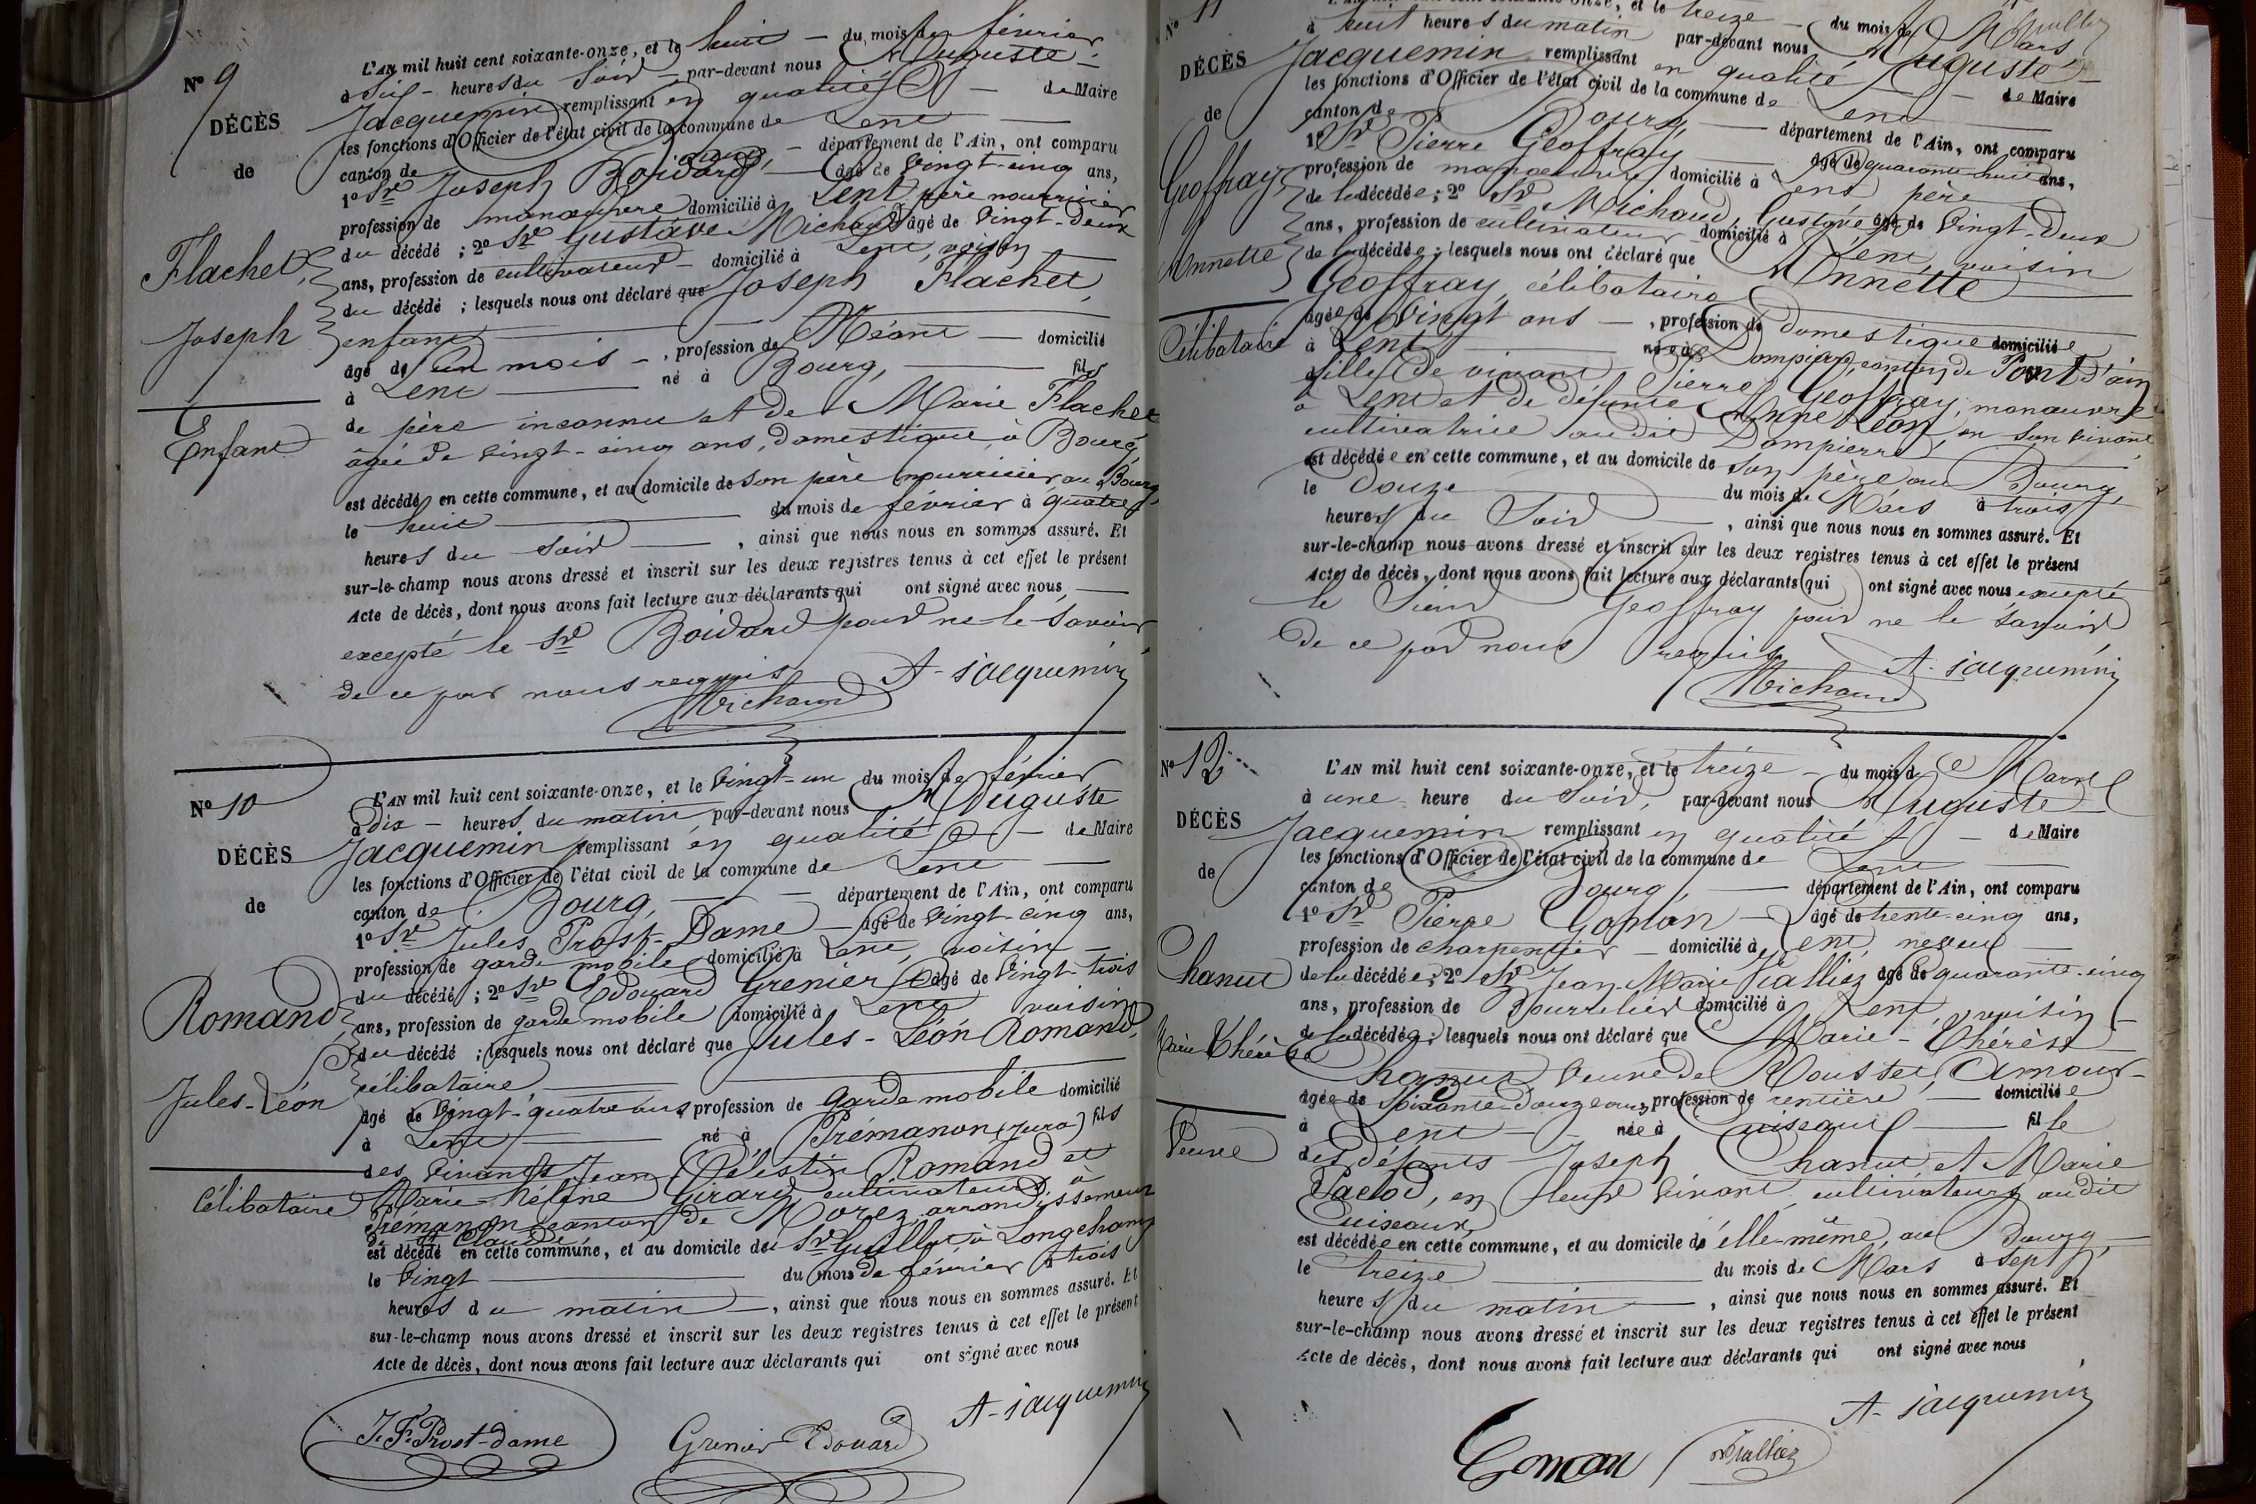 N° 9
DÉCÈS
de
Flachet,
Joseph
Enfant
L'AN mil huit cent soixante-onze, et le huit du mois de février
à six heures du soir par-devant nous Auguste
Jacquemin remplissant en qualité de Maire
les fonctions d'Officier de l'état civil de la commune de Lent
canton de Bourg, département de l'Ain, ont comparu
1° Sr Joseph Boidard, âgé de vingt-cinq ans,
profession de manœuvre domicilié à Lent, père nourricier
du décédé ; 2° Sr Gustave Michaud âgé de vingt-deux
ans, profession de cultivateur domicilié à Lent, voisin
du décédé ; lesquels nous ont déclaré que Joseph Flachet,
enfant
âgé de un mois , profession de Néant domicilié
à Lent né à Bourg, fils
de père inconnu et de Marie Flachet
âgée de vingt-cinq ans, domestique à Bourg,
est décédé en cette commune, et au domicile de son père nourricier au Bourg
le huit du mois de février à quatre
heures du soir , ainsi que nous nous en sommes assuré. Et
sur-le-champ nous avons dressé et inscrit sur les deux registres tenus à cet effet le présent
Acte de décès, dont nous avons fait lecture aux déclarants qui ont signé avec nous
excepté le Sr Boidard pour ne le savoir
de ce par nous requis
Michaud A. Jacquemin
N° 10
DÉCÈS
de
Romand
Jules-Léon
Célibataire
L'AN mil huit cent soixante-onze, et le vingt-un du mois de février
à dix heures du matin par-devant nous Auguste
Jacquemin remplissant en qualité de Maire
les fonctions d'Officier de l'état civil de la commune de Lent
canton de Bourg, département de l'Ain, ont comparu
1° Sr Jules Prost-Dame âgé de vingt-cinq ans,
profession de garde mobile domicilié à Lent, voisin
du décédé ; 2° Sr Edouard Grenier âgé de vingt-trois
ans, profession de garde mobile domicilié à Lent voisin
du décédé ; lesquels nous ont déclaré que Jules-Léon Romand,
célibataire
âgé de vingt-quatre ans profession de garde mobile domicilié
à Lent né à Prémanon (Jura) fils
des vivants Jean Célestin Romand et
Marie-Hélène Girard cultivateurs à
Prémanon canton de Morez arrondissement
de St Claude
est décédé en cette commune, et au domicile du Sr à Longchamp
le vingt du mois de février à trois
heures du matin , ainsi que nous nous en sommes assuré. Et
sur-le-champ nous avons dressé et inscrit sur les deux registres tenus à cet effet le présent
Acte de décès, dont nous avons fait lecture aux déclarants qui ont signé avec nous
J. F. Prost-dame Grenier Edouard A. Jacquemin
N° 11
DÉCÈS
de
Geoffray
Annette
Célibataire
et le treize du mois de Mars
à huit heures du matin par-devant nous Auguste
Jacquemin remplissant en qualité de Maire
les fonctions d'Officier de l'état civil de la commune de Lent
canton de Bourg, département de l'Ain, ont comparu
1° Sr Pierre Geoffray âgé de quarante-huit ans,
profession de manœuvre domicilié à Lent père
de la décédée ; 2° Sr Michaud, Gustave âgé de vingt-deux
ans, profession de cultivateur domicilié à Lent, voisin
de la décédée ; lesquels nous ont déclaré que Annette
Geoffray, célibataire
âgée de vingt ans , profession de domestique domiciliée
à Lent née à Dompierre, canton de Pont d'ain
fille de vivant Pierre Geoffray, manœuvre
à Lent et de défunte Anne Léon, en son vivant
cultivatrice audit Dompierre,
est décédée en cette commune, et au domicile de son père au Bourg,
le douze du mois de Mars à trois
heures du soir , ainsi que nous nous en sommes assuré. Et
sur-le-champ nous avons dressé et inscrit sur les deux registres tenus à cet effet le présent
Acte de décès, dont nous avons fait lecture aux déclarants qui ont signé avec nous excepté
le Sieur Geoffray pour ne le savoir
de ce par nous requis
Michaud A. Jacquemin
N° 12
DÉCÈS
de
Chanut
Marie Thérèse
Veuve
L'AN mil huit cent soixante-onze, et le treize du mois de Mars
à une heure du soir, par-devant nous Auguste
Jacquemin remplissant en qualité de Maire
les fonctions d'Officier de l'état civil de la commune de Lent
canton de Bourg, département de l'Ain, ont comparu
1° Sr Pierre Goman âgé de trente-cinq ans,
profession de charpentier domicilié à Lent, neveu
de la décédée ; 2° Sr Jean-Marie Falliez âgé de quarante-cinq
ans, profession de Bourrelier domicilié à Lent, voisin
de la décédée ; lesquels nous ont déclaré que Marie-Thérèse
Chanut veuve de Rousset, Amour
âgée de soixante-douze ans, profession de rentière domiciliée
à Lent née à Cuiseaux fille
des défunts Joseph Chanut, et Marie
en leur vivant cultivateurs audit
Cuiseaux,
est décédée en cette commune, et au domicile de elle-même, au Bourg,
le treize du mois de Mars à sept
heures du matin , ainsi que nous nous en sommes assuré. Et
sur-le-champ nous avons dressé et inscrit sur les deux registres tenus à cet effet le présent
Acte de décès, dont nous avons fait lecture aux déclarants qui ont signé avec nous
A. Jacquemin
Goman Falliez